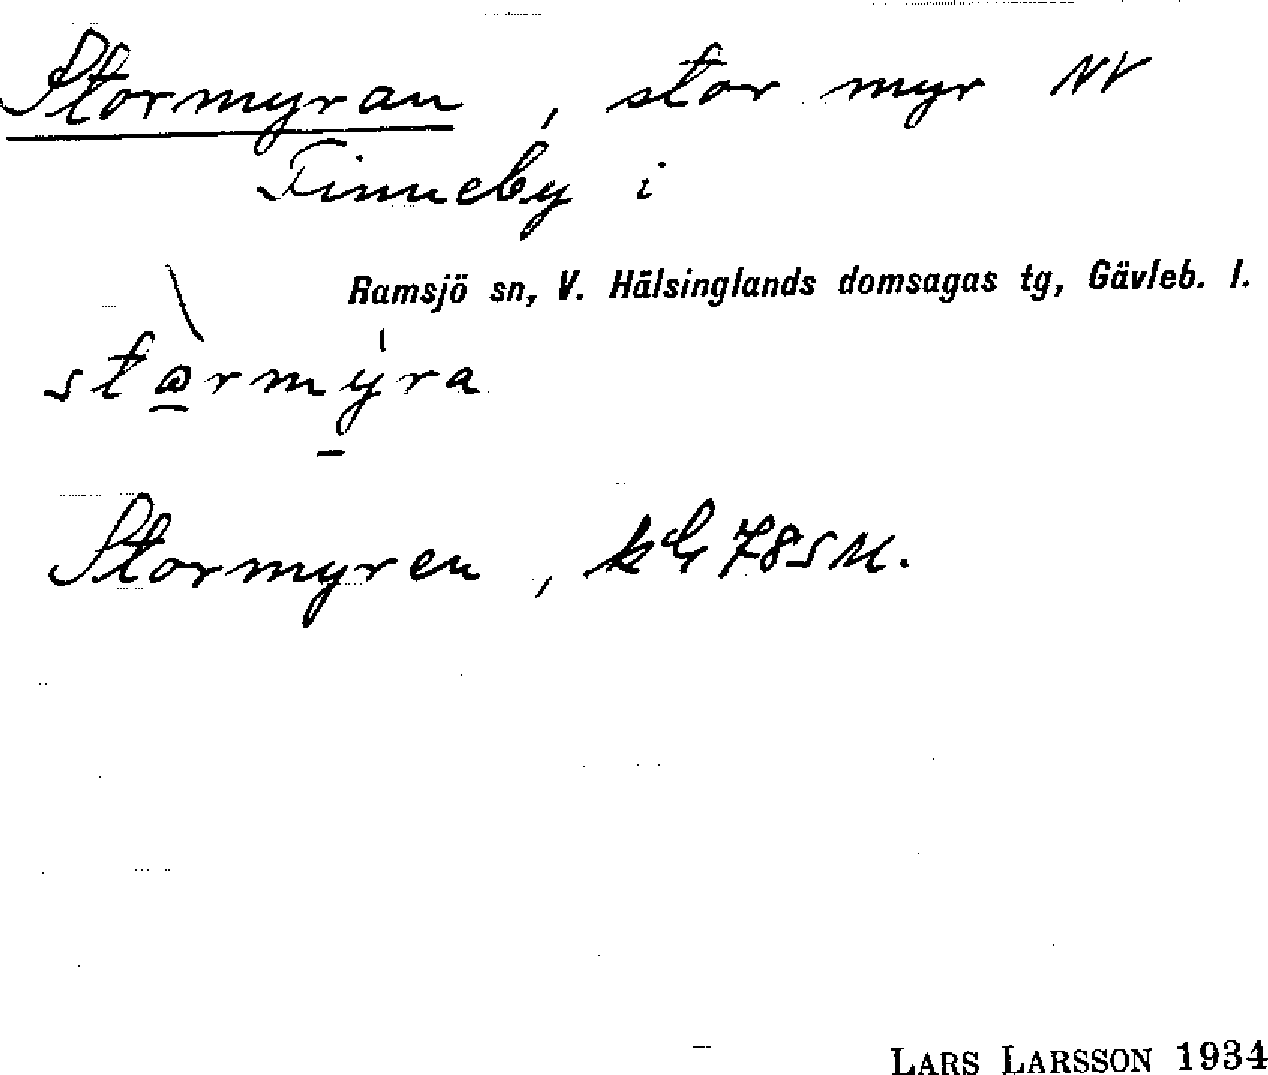 Stormyran, stor myr NV
Finneby i
Ramsjö sn, V. Hälsinglands domsagas tg, Gävleb. l.
stormyra
Stormyren, kG 785 M.
LARS LARSSON 1934